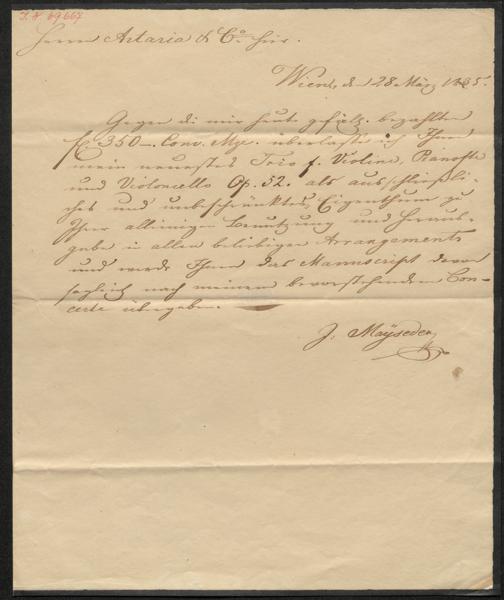 I. N 69667
Herrn Artaria & Co. hier.
Wien, den 28 März 1835.
Gegen die mir heute gefälz. bezahlten
fl. 350 – Conv. Mze. überlasse ich Ihnen
mein neuestes Trio f. Violine, Pianoforte
und Violoncello Op. 52. als ausschließli-
ches und unbeschränktes Eigenthum zu
Ihrer alleinigen Benutzung und Heraus-
gabe in allen beliebigen Arrangements
und werde Ihnen das Manuscript davon
sogleich nach meinem bevorstehenden Con-
certe übergeben.
J. Mayseder